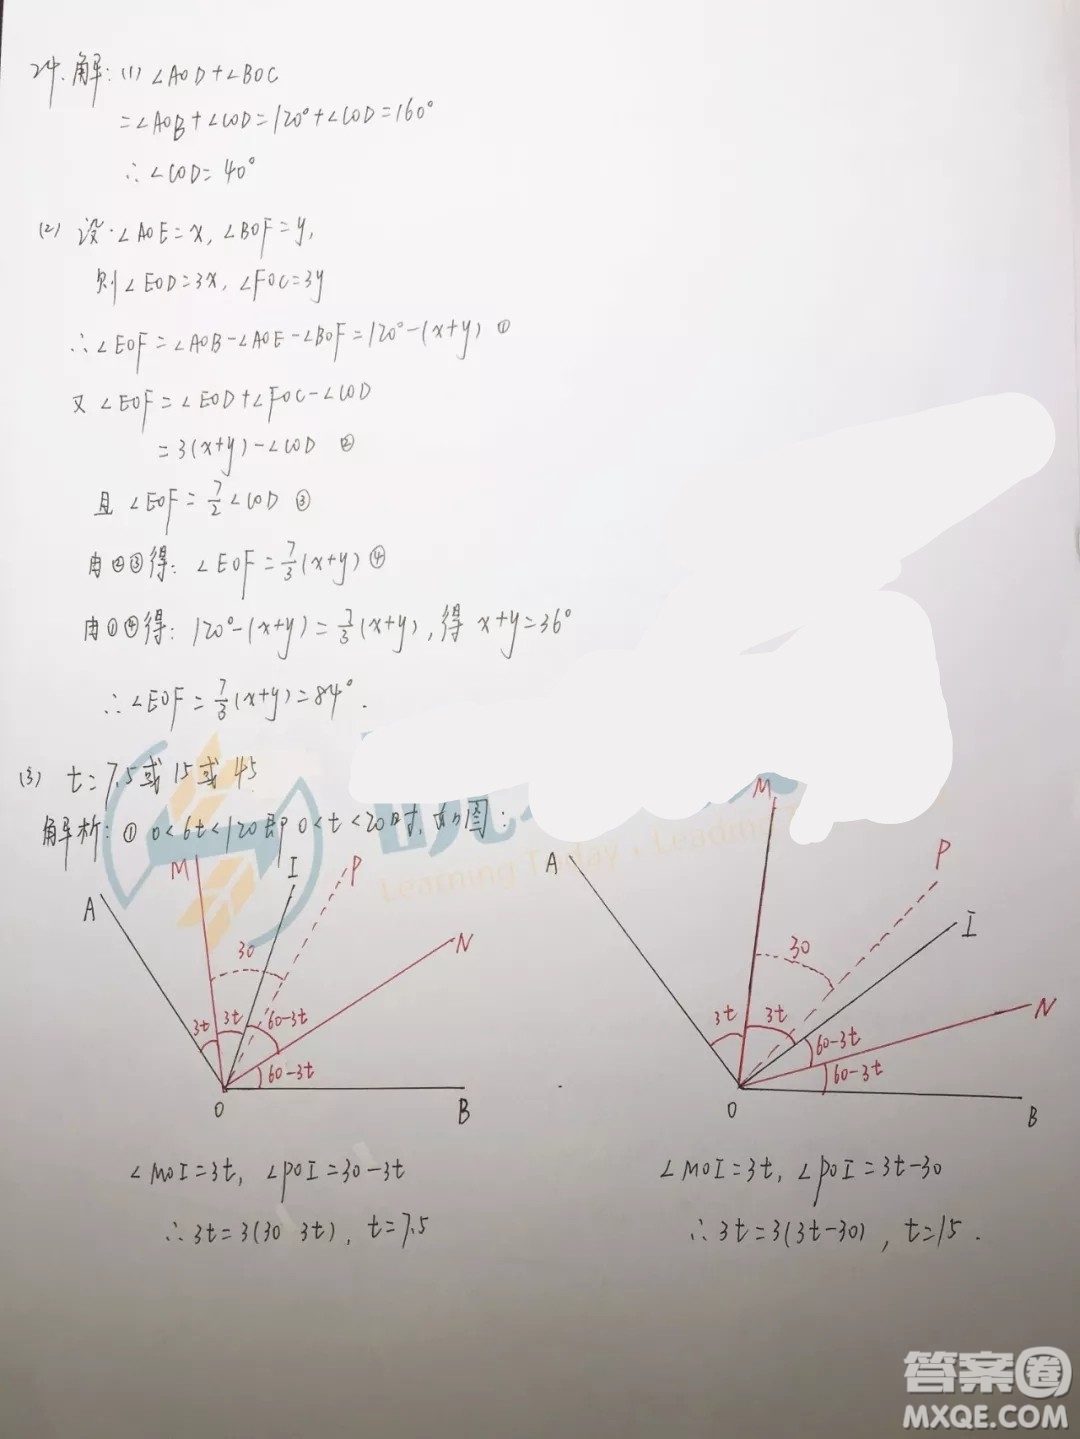 24. 解: (1) ∠AOD+∠BOC
=∠AOB+∠COD=120°+∠COD=160°
∴∠COD=40°
(2) 设·∠AOE=x, ∠BOF=y,
则∠EOD=3x, ∠FOC=3y
∴∠EOF=∠AOB-∠AOE-∠BOF=120°-(x+y) ①
又∠EOF=∠EOD+∠FOC-∠COD
=3(x+y)-∠COD ②
且∠EOF=7/2∠COD ③
由②③得: ∠EOF=7/3(x+y) ④
由①④得: 120°-(x+y)=7/3(x+y), 得 x+y=36°
∴∠EOF=7/3(x+y)=84°.
(3) t=7.5或15或45
解析: ① 0<6t<120即0<t<20时, 如图:
Learning Today, Leading
A M I P N
30
3t 3t 60-3t
60-3t
O B
A M P I N
30
3t 3t 60-3t
60-3t
O B
∠MOI=3t, ∠POI=30-3t
∴3t=3(30 3t), t=7.5
∠MOI=3t, ∠POI=3t-30
∴3t=3(3t-30), t=15.
答案圈
MXQE.COM